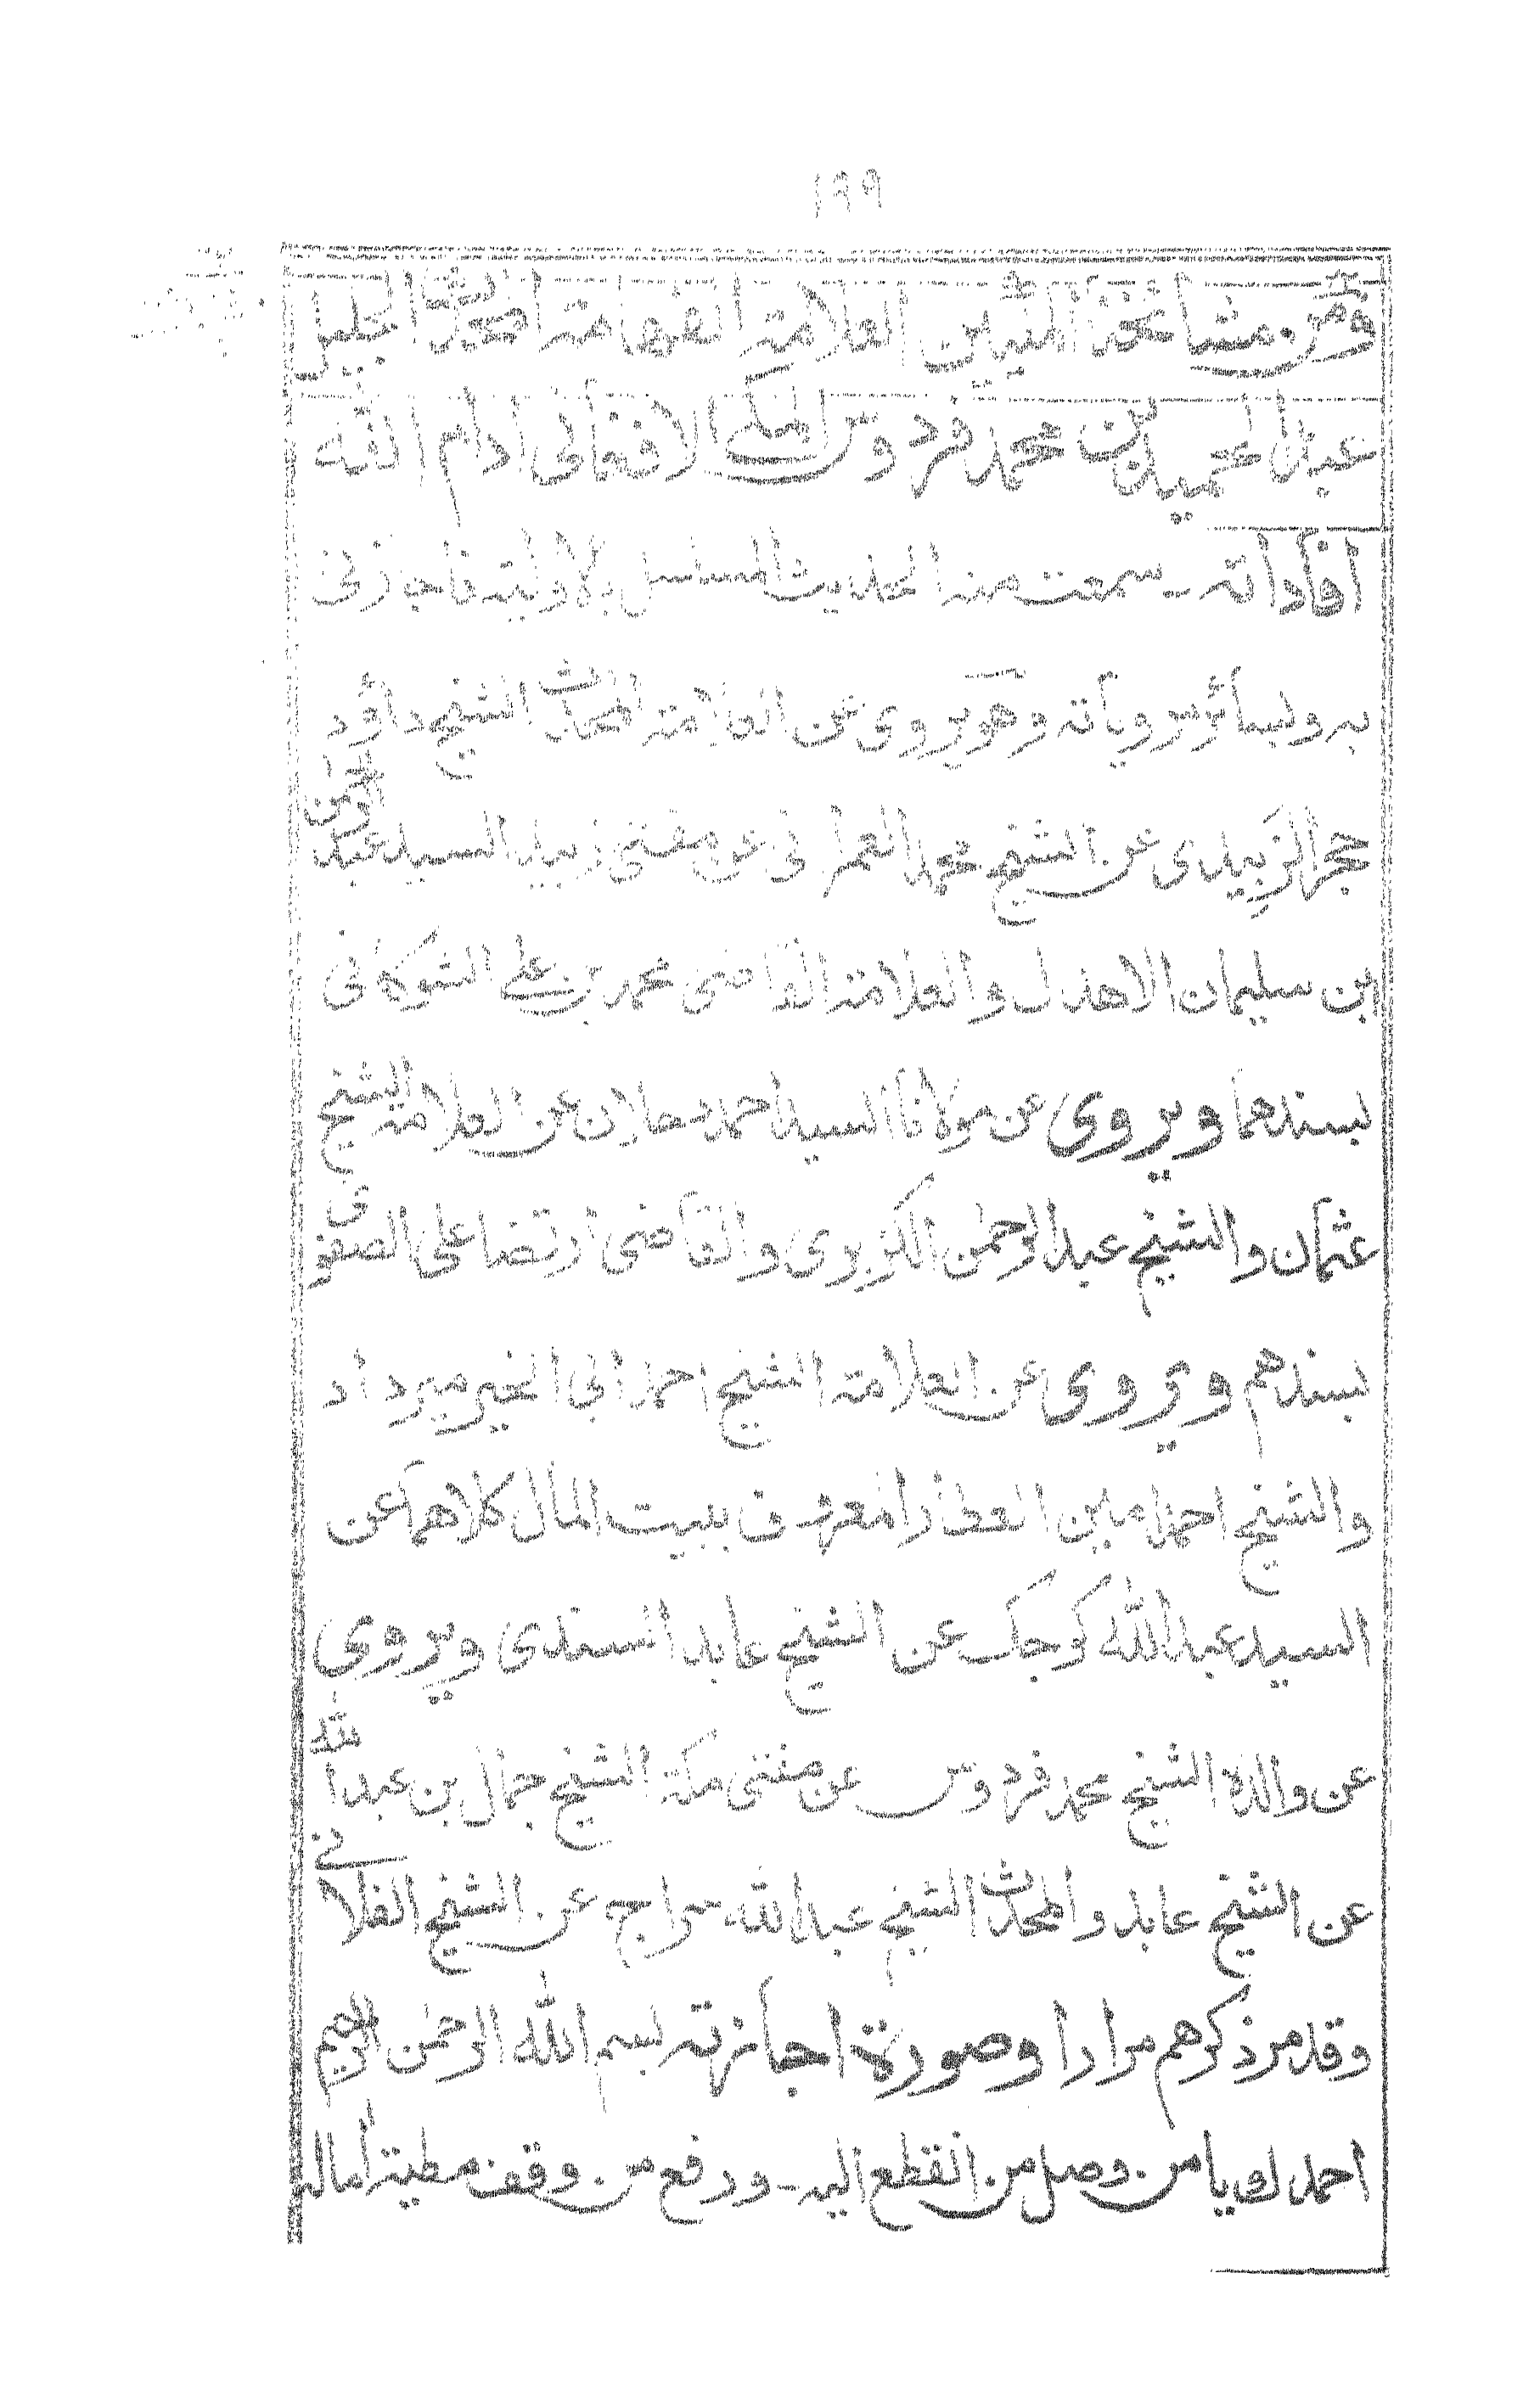 ١٩٩
ومن مشائخنا المكيين العلامة الفهامة المحدث الجليل
عبد الحميد بن محمد فردوس المكي الافغاني ادام الله
افاداته - سمعت منه الحديث المسلسل بالاولية فاجازني
به وبسائر مروياته وهو يروي عن العلامة المحدث الشيخ داؤد
حجر الزبيدي عن الشيخ محمد العمراني عن مفتي زبيد السيد عبد الرحمٰن
ابن سليمان الاهدل والعلامة القاضي محمد بن علي الشوكاني
بسندهما ويروي عن مولانا السيد احمد دحلان عن العلامة الشيخ
عثمان والشيخ عبد الرحمٰن الكزبري والقاضي ارتضا علي الصفوي
بسندهم ويروي عن العلامة الشيخ احمد ابي الخير ميرداد
والشيخ احمد امين العطار المعروف ببيت المال كلاهما عن
السيد عبد الله كوجك عن الشيخ عابد السندي ويروي
عن والده الشيخ محمد فردوس عن مفتي مكة الشيخ جمال بن عبد الله
عن الشيخ عابد والمحدث الشيخ عبد الله سراج عن الشيخ الفلاني
وقد مر ذكرهم مرارا وصورة اجازته بسم الله الرحمٰن الرحيم
احمدك يا من وصل من انقطع اليه - ورفع من وقف مطية اماله